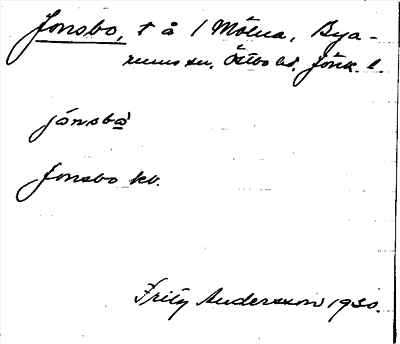 Jonsbo, t å 1 Mölna, Bya-
rums sn, Östbo hd, Jönk. l.
jónsbo̲
Jonsbo kv.
Fritz Andersson 1930.